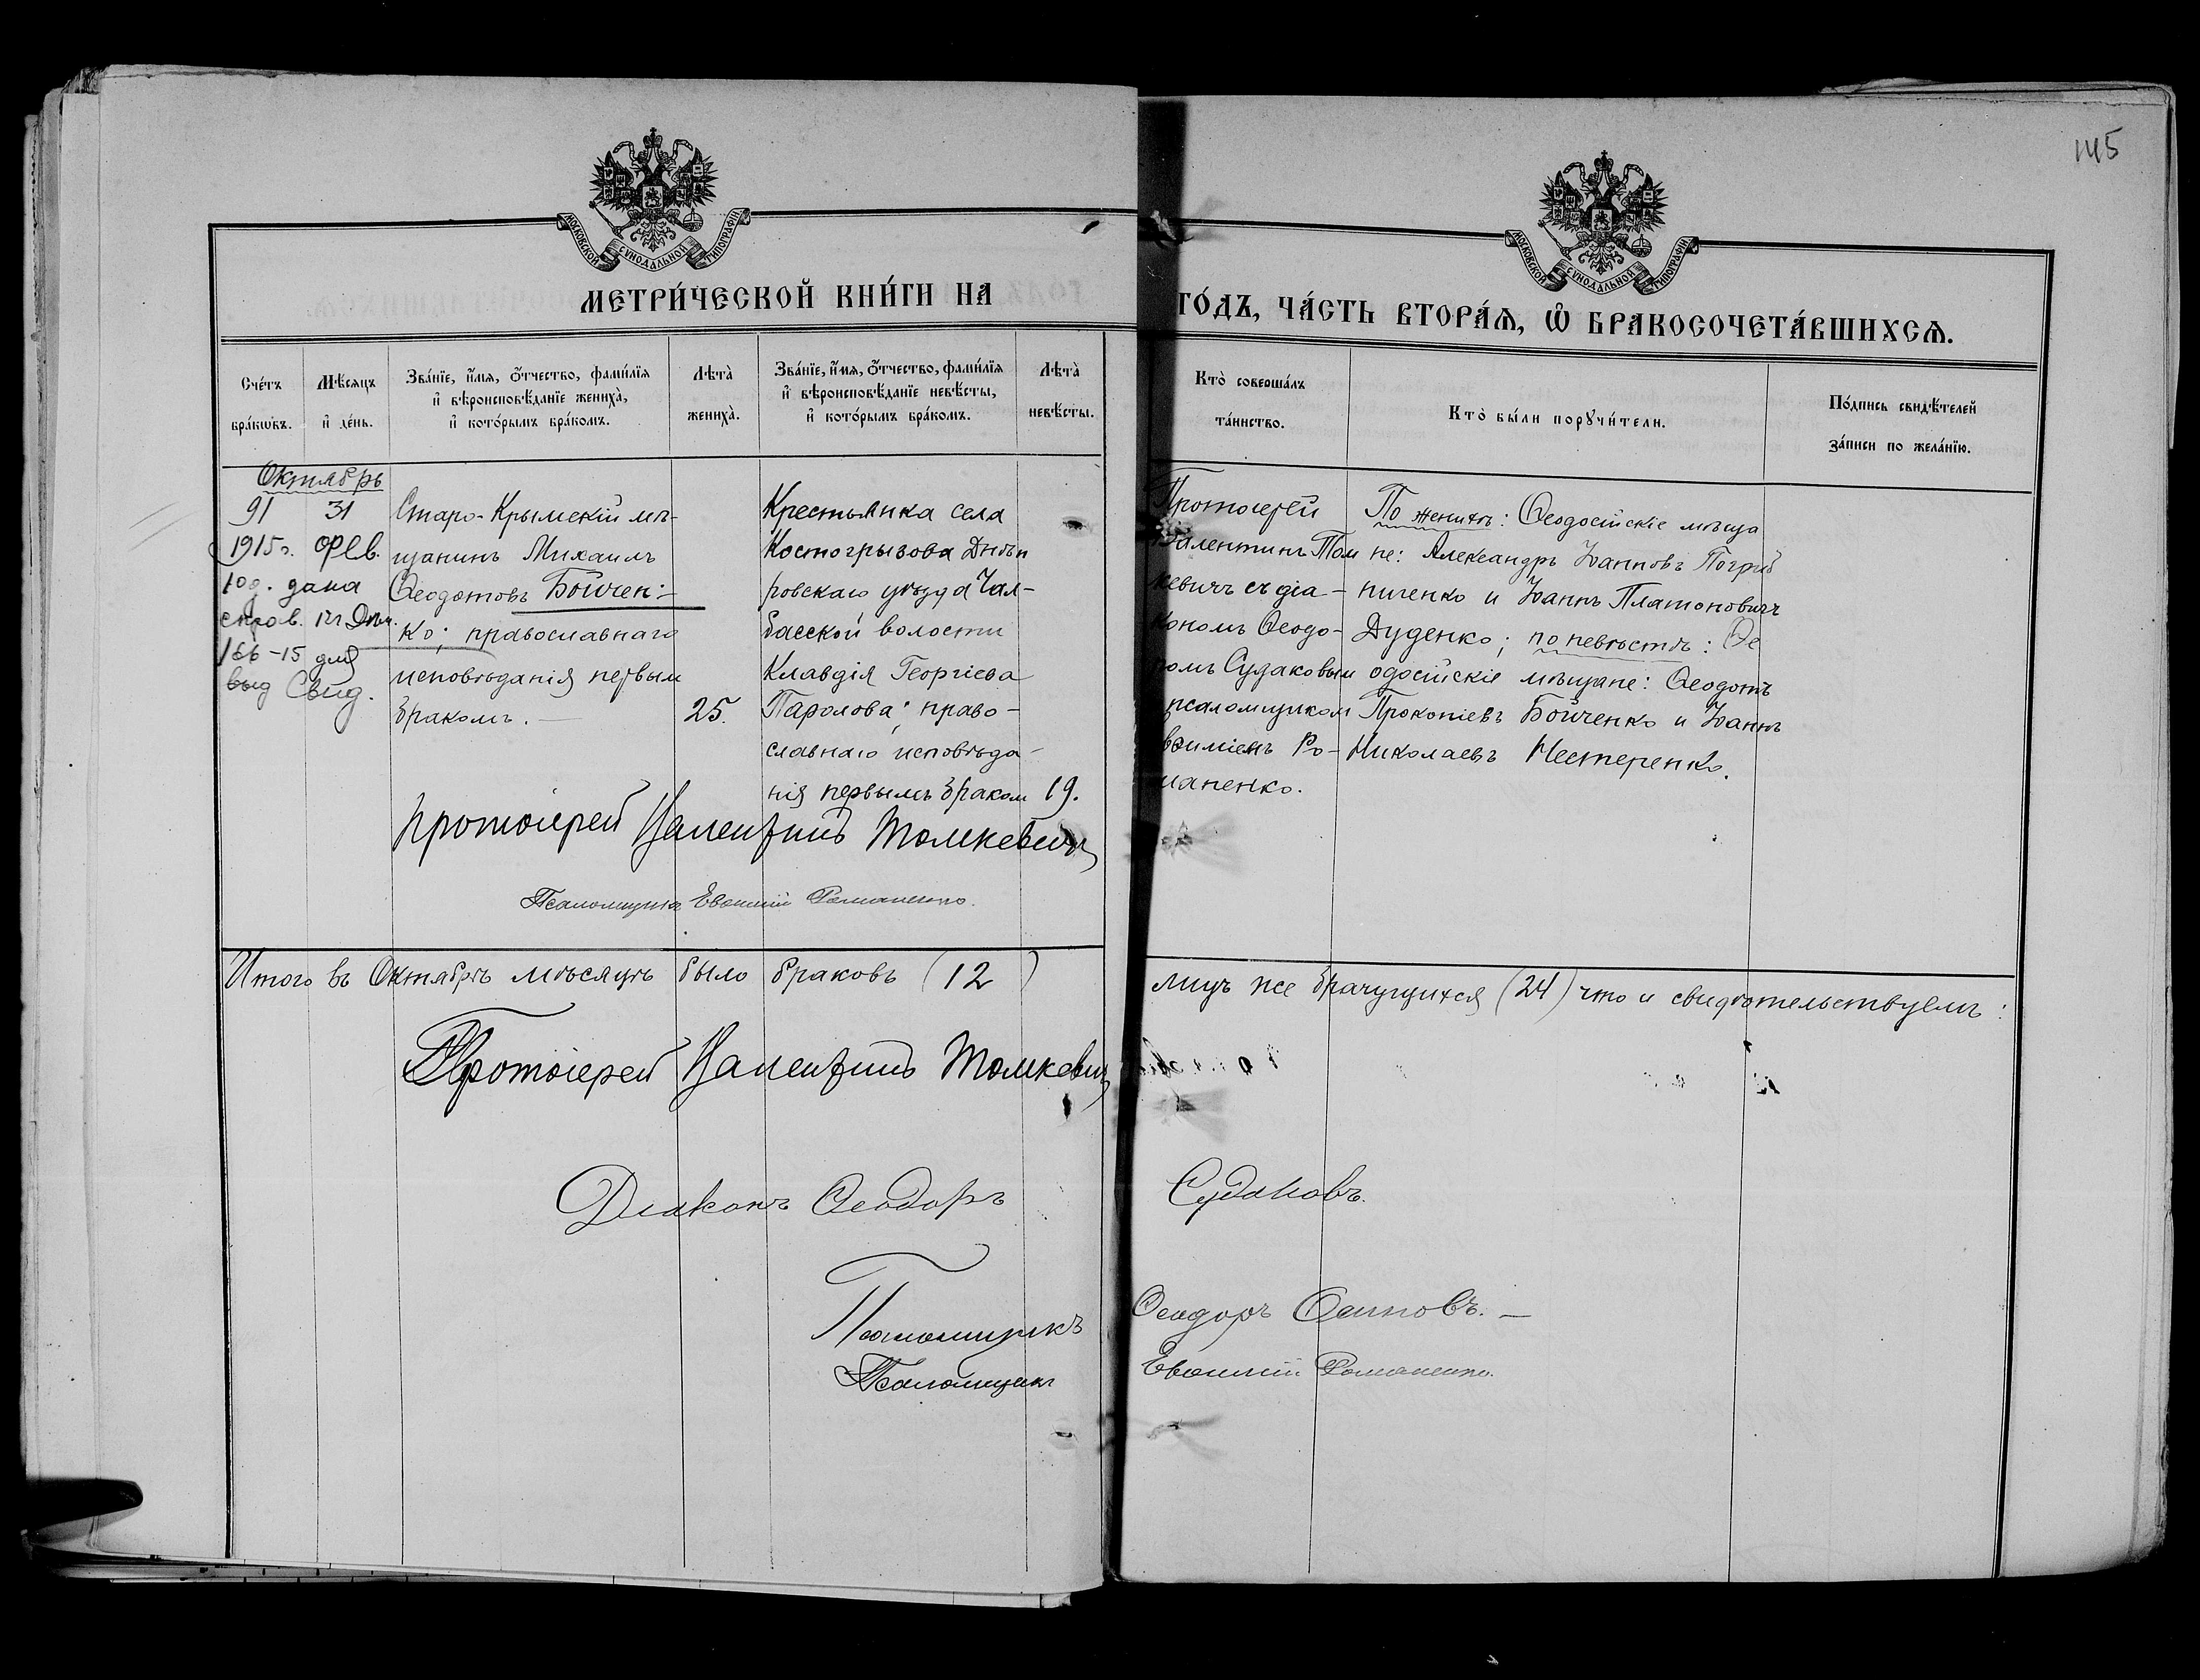 145
МОСКОВСКОЙ СѴНОДАЛЬНОЙ ТИПОГРАФІИ
МОСКОВСКОЙ СѴНОДАЛЬНОЙ ТИПОГРАФІИ
МЕТРИ́ЧЕСКОЙ КНИ́ГИ НА
ГО́ДЪ, ЧА́СТЬ ВТОРА́Ѧ, Ѽ БРАКОСОЧЕТА́ВШИХСѦ.
Сче́тъ
бра́кѡвъ.
Мѣ́сяцъ
и҆ де́нь.
Зва́нїе, и҆́мѧ, ѻ҆́тчество, фами́лїѧ
и҆ вѣроисповѣ́данїе жениха̀,
и҆ кото́рымъ бра́комъ.
Лѣта̀
жениха̀.
Зва́нїе, и҆́мѧ, ѻ҆́тчество, фами́лїѧ
и҆ вѣроисповѣ́данїе невѣ́сты,
и҆ кото́рымъ бра́комъ.
Лѣта̀
невѣ́сты.
Кто̀ соверша́лъ
та́инство.
Кто̀ бы́ли порꙋчи́тели.
По́дпись свидѣ́телей
за́писи по жела́нїю.
Октябрь
91 31
1915 г. Фев.
10 д. дана
166-15 для
выд Свид.
Старо-Крымскій мѣ-
щанинъ Михаилъ
Ѳеодотовъ Бойчен-
ко; православнаго
исповѣданія первым
бракомъ. 25.
Крестьянка села
Костогрызова Днѣп
ровскаго уѣзда Чал-
басской волости
Клавдія Георгіева
Паролова; право-
славнаго исповѣда-
нія первымъ браком 19.
Протоіерей
Валентинъ Том
кевичъ съ діа-
кономъ Ѳеодо-
ромъ Судаковым
псаломщиком
Евѳиміемъ Ро-
маненко.
По женихѣ: Ѳеодосійскіе мѣща
не: Александръ Іоанновъ Погрѣб
ниченко и Іоаннъ Платоновичъ
Дуденко; по невѣстѣ: Ѳе
одосійскіе мѣщане: Ѳеодотъ
Прокопіевъ Бойченко и Іоаннъ
Николаевъ Нестеренко.
Протоіерей Валентинъ Томкевичъ
Псаломщикъ Евѳимій Романенко.
Итого въ Октябрѣ мѣсяцѣ было браковъ (12) лицъ же брачущихся (24) что и свидѣтельствуемъ:
Протоіерей Валентинъ Томкевичъ
Діаконъ Ѳеодоръ Судаковъ.
Псаломщикъ Ѳеодоръ Осиповъ.
Псаломщикъ Евѳимій Романенко.